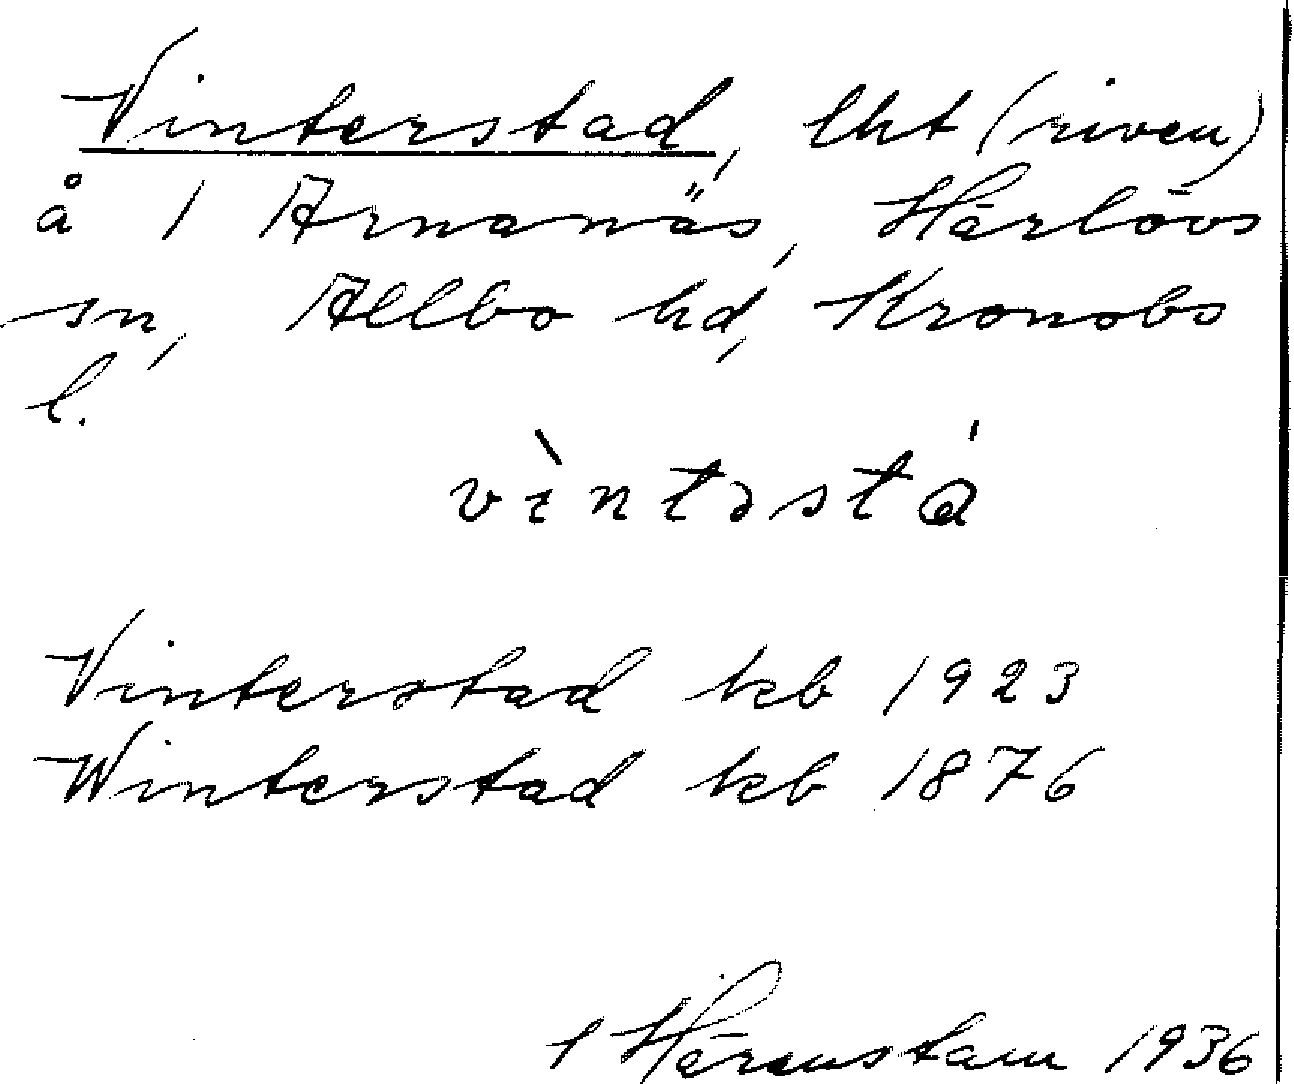 Vinterstad, lht (riven)
å 1 Arnanäs, Härlövs
sn, Allbo hd, Kronobs
l.
vìntəstá
Vinterstad kb 1923
Winterstad kb 1876
Härenstam 1936